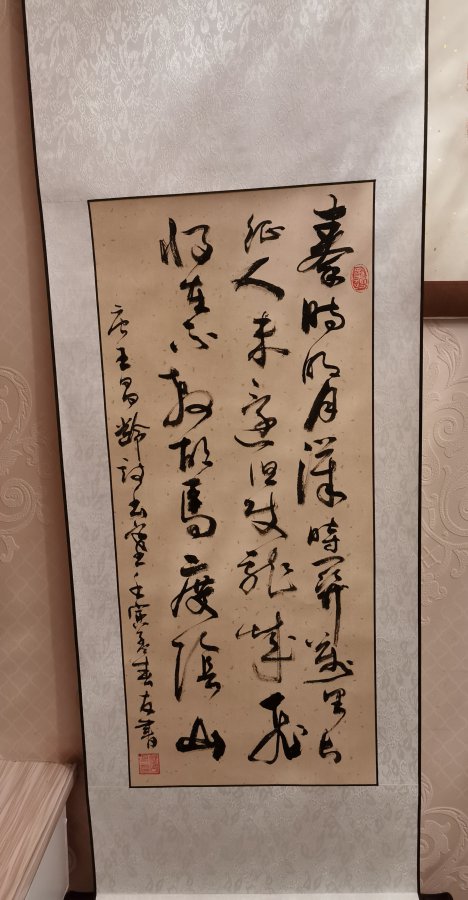 秦時明月漢時關萬里长
征人未還但使龍城飛
將在不教胡馬度陰山
唐王昌齡詩出塞壬寅春友書